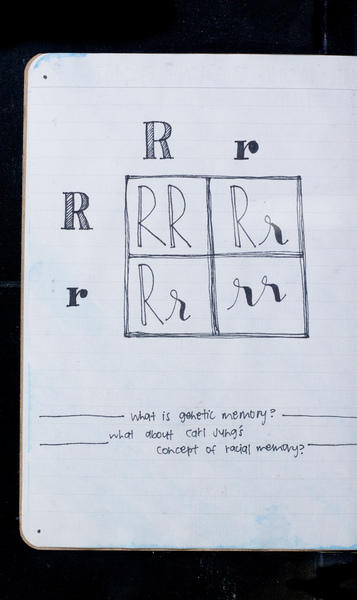 R r
R RR Rr
r Rr rr
what is genetic memory?
what about Carl Jung's
concept of racial memory?